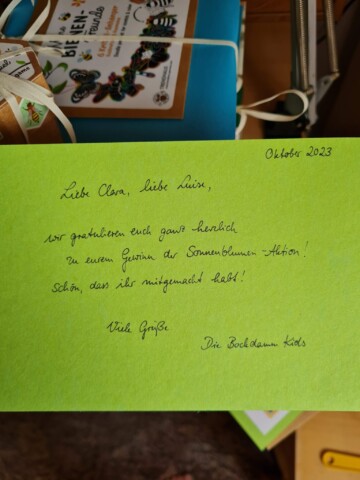 BIENEN-
freunde
Oktober 2023
Liebe Clara, liebe Luise,
wir gratulieren euch ganz herzlich
zu eurem Gewinn der Sonnenblumen-Aktion!
Schön, dass ihr mitgemacht habt!
Viele Grüße
Die Bochdamm Kids